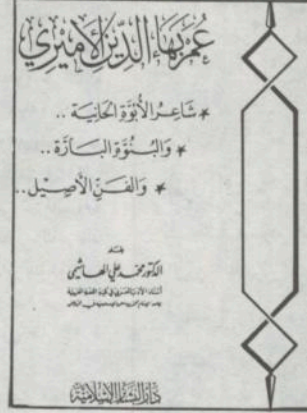 عُمَر بَهَاء الدِّين الأَمِيْرِي
* شَاعِرُ الأُبُوَّةِ الحَانِيَة ..
* وَالبُنُوَّةِ البَارَّة ..
* وَالفَنِّ الأَصِيْل ..
بقلم
الدكتور محمد علي الهاشمي
دَارُ البَشَائِر الإِسْلَامِيَّة